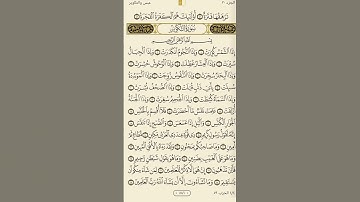 الجزء ٣٠ عبس والتكوير
تَرْهَقُهَا قَتَرَةٌ ٤١ أُوْلَٰٓئِكَ هُمُ ٱلْكَفَرَةُ ٱلْفَجَرَةُ ٤٢
سُورَةُ التَّكْوِيرِ
بِسْمِ ٱللَّهِ ٱلرَّحْمَٰنِ ٱلرَّحِيمِ
إِذَا ٱلشَّمْسُ كُوِّرَتْ ١ وَإِذَا ٱلنُّجُومُ ٱنكَدَرَتْ ٢ وَإِذَا ٱلْجِبَالُ
سُيِّرَتْ ٣ وَإِذَا ٱلْعِشَارُ عُطِّلَتْ ٤ وَإِذَا ٱلْوُحُوشُ حُشِرَتْ ٥
وَإِذَا ٱلْبِحَارُ سُجِّرَتْ ٦ وَإِذَا ٱلنُّفُوسُ زُوِّجَتْ ٧ وَإِذَا ٱلْمَوْءُۥدَةُ
سُئِلَتْ ٨ بِأَيِّ ذَنۢبٍ قُتِلَتْ ٩ وَإِذَا ٱلصُّحُفُ نُشِرَتْ ١٠ وَإِذَا
ٱلسَّمَآءُ كُشِطَتْ ١١ وَإِذَا ٱلْجَحِيمُ سُعِّرَتْ ١٢ وَإِذَا ٱلْجَنَّةُ أُزْلِفَتْ ١٣
عَلِمَتْ نَفْسٌ مَّآ أَحْضَرَتْ ١٤ فَلَآ أُقْسِمُ بِٱلْخُنَّسِ ١٥
ٱلْجَوَارِ ٱلْكُنَّسِ ١٦ وَٱلَّيْلِ إِذَا عَسْعَسَ ١٧ وَٱلصُّبْحِ إِذَا تَنَفَّسَ ١٨
إِنَّهُۥ لَقَوْلُ رَسُولٍ كَرِيمٍ ١٩ ذِى قُوَّةٍ عِندَ ذِى ٱلْعَرْشِ مَكِينٍ ٢٠ مُّطَاعٍ
ثَمَّ أَمِينٍ ٢١ وَمَا صَاحِبُكُم بِمَجْنُونٍ ٢٢ وَلَقَدْ رَءَاهُ بِٱلْأُفُقِ ٱلْمُبِينِ ٢٣
وَمَا هُوَ عَلَى ٱلْغَيْبِ بِضَنِينٍ ٢٤ وَمَا هُوَ بِقَوْلِ شَيْطَٰنٍ رَّجِيمٍ ٢٥
فَأَيْنَ تَذْهَبُونَ ٢٦ إِنْ هُوَ إِلَّا ذِكْرٌ لِّلْعَٰلَمِينَ ٢٧ لِمَن شَآءَ مِنكُمْ أَن
يَسْتَقِيمَ ٢٨ وَمَا تَشَآءُونَ إِلَّآ أَن يَشَآءَ ٱللَّهُ رَبُّ ٱلْعَٰلَمِينَ ٢٩
١/٤ الحزب ٥٩ ٥٨٦